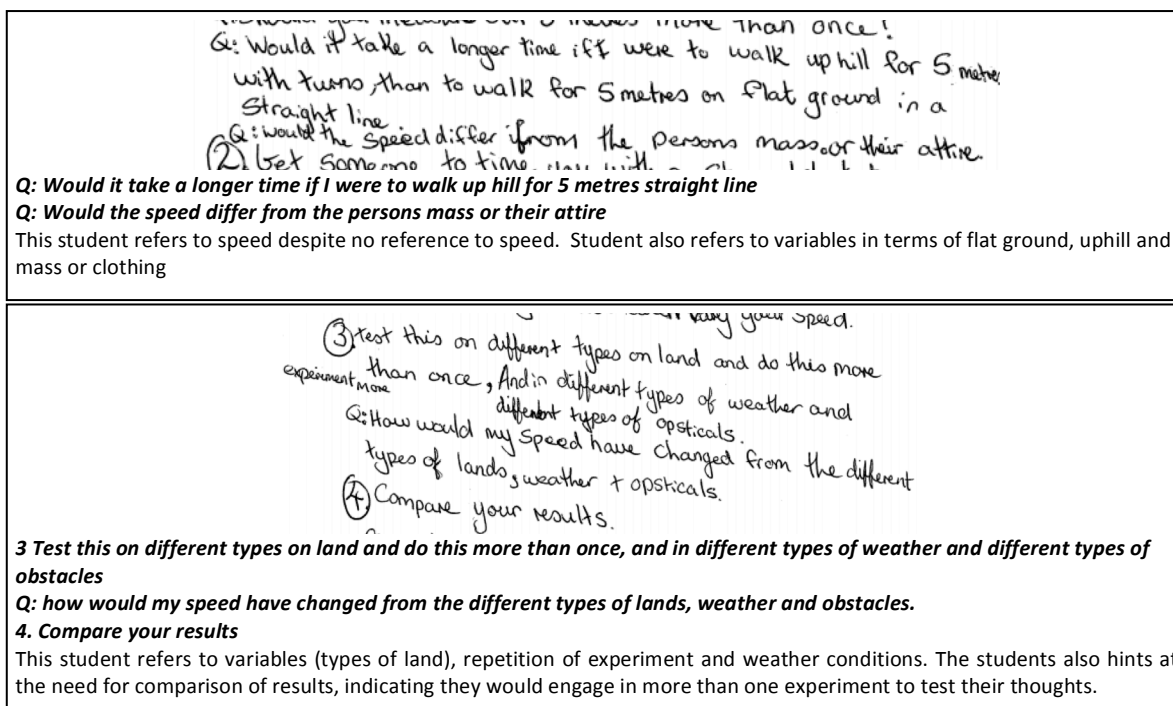 more than once!
Q: Would it take a longer time if I were to walk up hill for 5 metres
with turns, than to walk for 5 metres on flat ground in a
Straight line
Q: would the speed differ from the persons mass or their attire.
(2) Get someone to time
Q: Would it take a longer time if I were to walk up hill for 5 metres straight line
Q: Would the speed differ from the persons mass or their attire
This student refers to speed despite no reference to speed. Student also refers to variables in terms of flat ground, uphill and
mass or clothing
vary your speed.
(3) test this on different types on land and do this more
experiment more than once, And in different types of weather and
different types of opsticals.
Q: How would my speed have changed from the different
types of lands, weather + opsticals.
(4) Compare your results.
3 Test this on different types on land and do this more than once, and in different types of weather and different types of
obstacles
Q: how would my speed have changed from the different types of lands, weather and obstacles.
4. Compare your results
This student refers to variables (types of land), repetition of experiment and weather conditions. The students also hints at
the need for comparison of results, indicating they would engage in more than one experiment to test their thoughts.